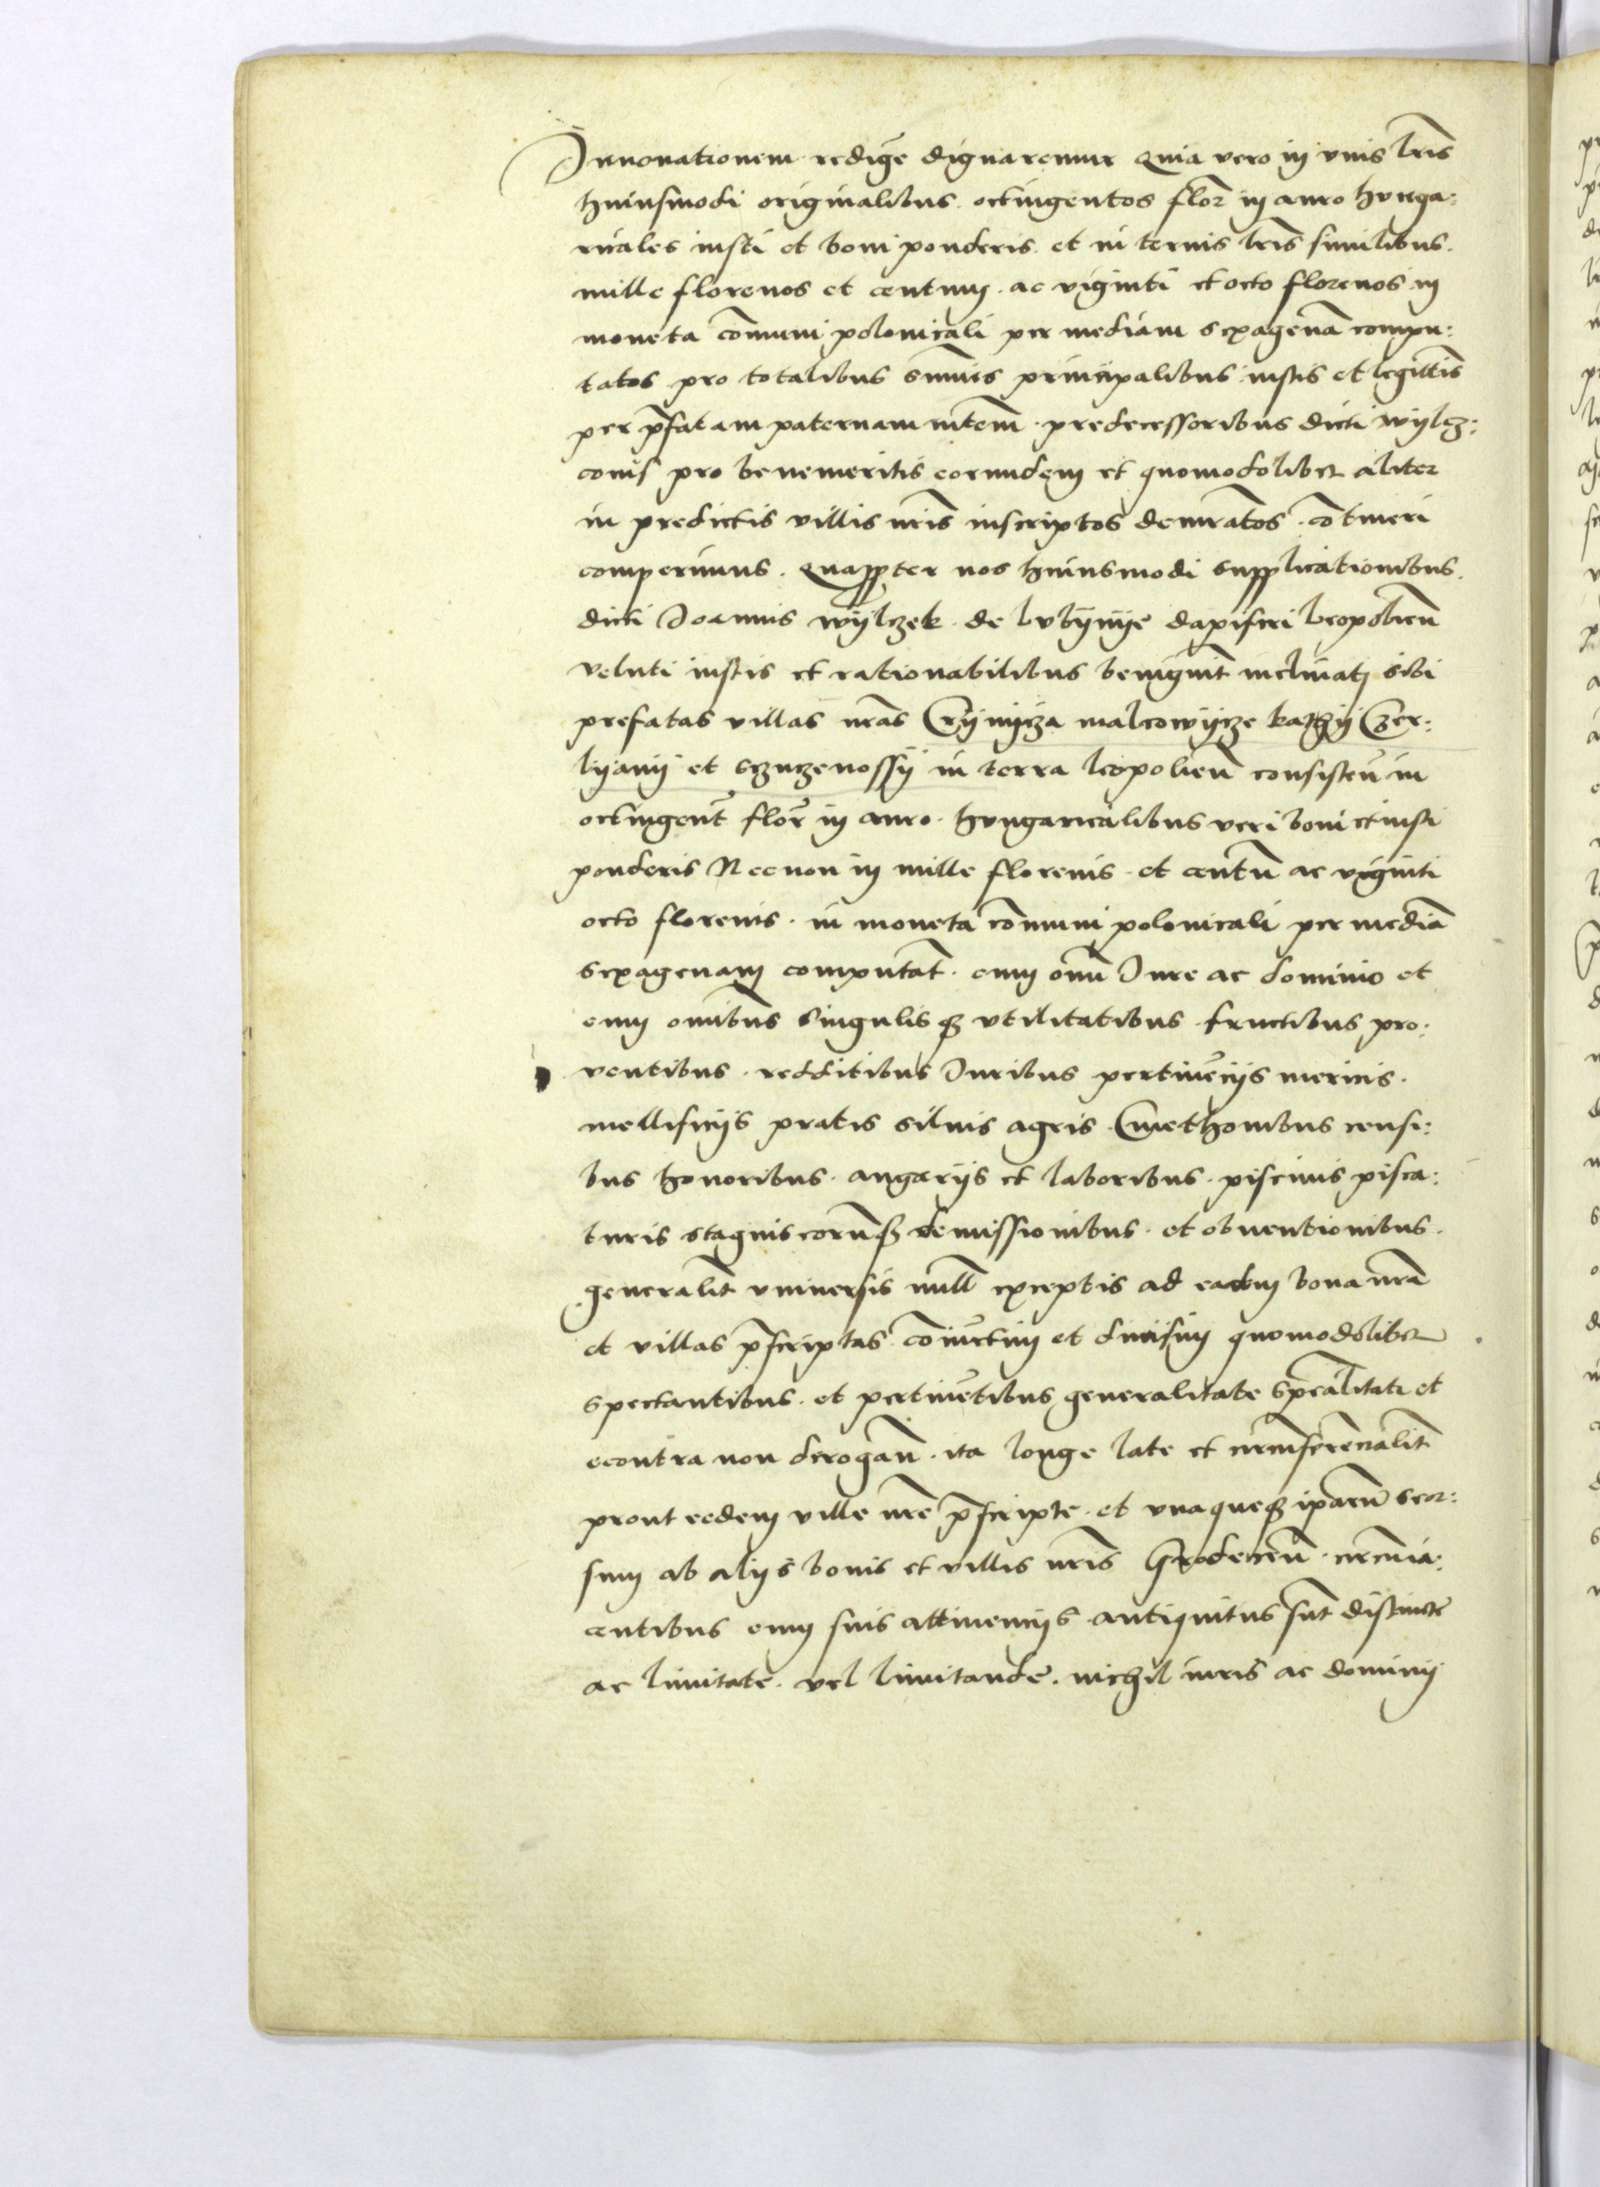 Innovationem redigẽ dignaremur Quia vero in vnis lr̃is
huiusmodi originalibus octingentos flor̃ in auro hvnga:
ricales iusti et boni ponderis et in ternis lr̃is similibus
mille florenos et centum ac viginti et octo florenos in
moneta cõmuni polonicali per mediam sexagenã compu:
tatos pro totalibus sum̃is principalibus iustis et legittĩs
per p̃fatam paternam nr̃tem̃ predecessoribus dicti wylcz:
conis pro benemeritis eorundem et quomodolibet aliter
in predictis villis nr̃is inscriptos demr̃atos cõtineri
comperimus. Quapp̃ter nos huiusmodi supplicationibus
dicti Joannis wylczek de lvbynye dapiferi leopolieñ
veluti iustis et rationabilibus benignit̃ inclinati sibi
prefatas villas nr̃as Crynycza malcowycze kathy Czer:
lyany et sczuczenossy in terra leopolieñ consisteñ in
octingent̃ flor̃ in auro hvngaricalibus veri boni et iusti
ponderis Necnon in mille florenis et centũ ac viginti
octo florenis in moneta cõmuni polonicali per mediã
sexagenam computat̃ cum omĩ Jure ac dominio et
cum omĩbus singulisq3 vtilitatibus fructibus pro:
ventibus redditibus Juribus pertinẽcijs mericis
mellificijs pratis siluis agris Cmethonibus censi:
bus honoribus angarijs et laboribus piscinis pisca:
turis stagnis eorumq3 demissionibus et obventionibus
generalit̃ vniversis null̃ exceptis ad eadem bona nr̃a
et villas p̃scriptas cõiũctim et diuisim quomodolibet
spectantibus et pertinẽtibus generalitate sp̃ealitati et
econtra non derogañ ita longe late et circũferencialit̃
prout eedem ville nr̃e p̃scripte et vnaqueq3 ip̃arũ seor:
sum ab alijs bonis et villis nr̃is Grodeceñ circũia:
centibus cum suis attinencijs antiquitus sũt distincte
ac limitate vel limitande. nichil iuris ac dominij